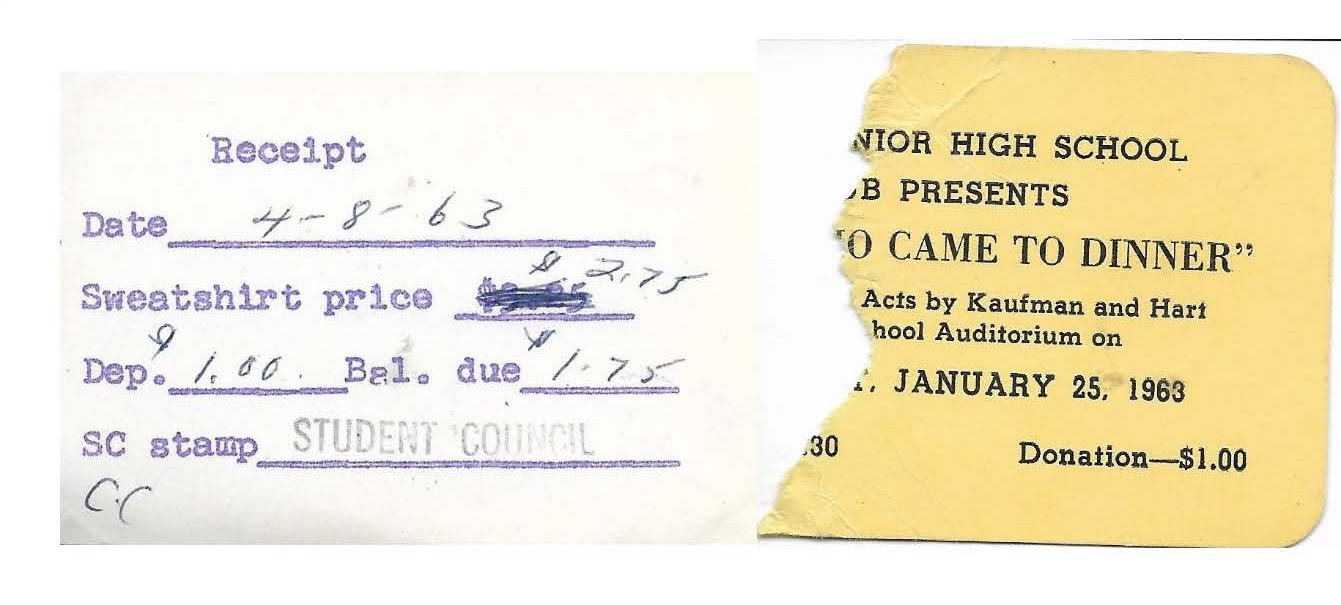 Receipt
Date 4-8-63
$2.75
Sweatshirt price
Dep. $1.00. Bal. due $1.75
SC stamp STUDENT COUNCIL
C.C
NIOR HIGH SCHOOL
B PRESENTS
O CAME TO DINNER”
Acts by Kaufman and Hart
hool Auditorium on
, JANUARY 25, 1963
30 Donation—$1.00